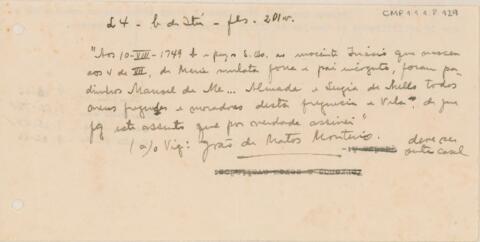 CMP 1.1.1.8.129
L 4 - b. de Itú - fls. 201v.
"Aos 10-VIII-1749 b e puz S. Óo, ao inocente Inácio que nasceu
aos V de VII, de Maria mulata forra e pai incógnito, foram pa-
drinhos Manuel de Me... Almada e Luzia de Mello todos
meus freguezes e moradores desta freguezia e Vila, de que
fiz este assento que por verdade assinei"
(a) o Vig: João de Matos Monteiro.
deve ser
outro casal